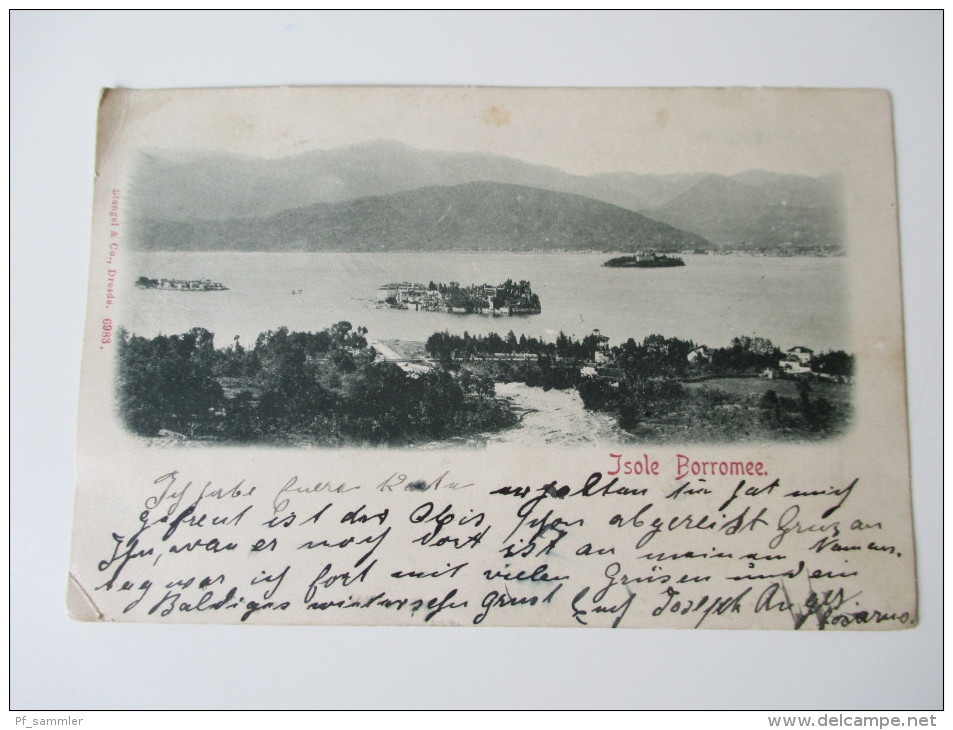 Stengel & Co., Dresda. 6983.
Isole Borromee.
Ich habe Karte erhalten für hat mich
gefreut ist der Alois, schon abgereist Gruz an
Ihn, wan er noch dort ist an meinen Namens
tag war ich fort mit vielen Grüsen und ein
Baldiges wiedersehn grust Euch Joseph
Locarno.
Pf_sammler
delcampe.net